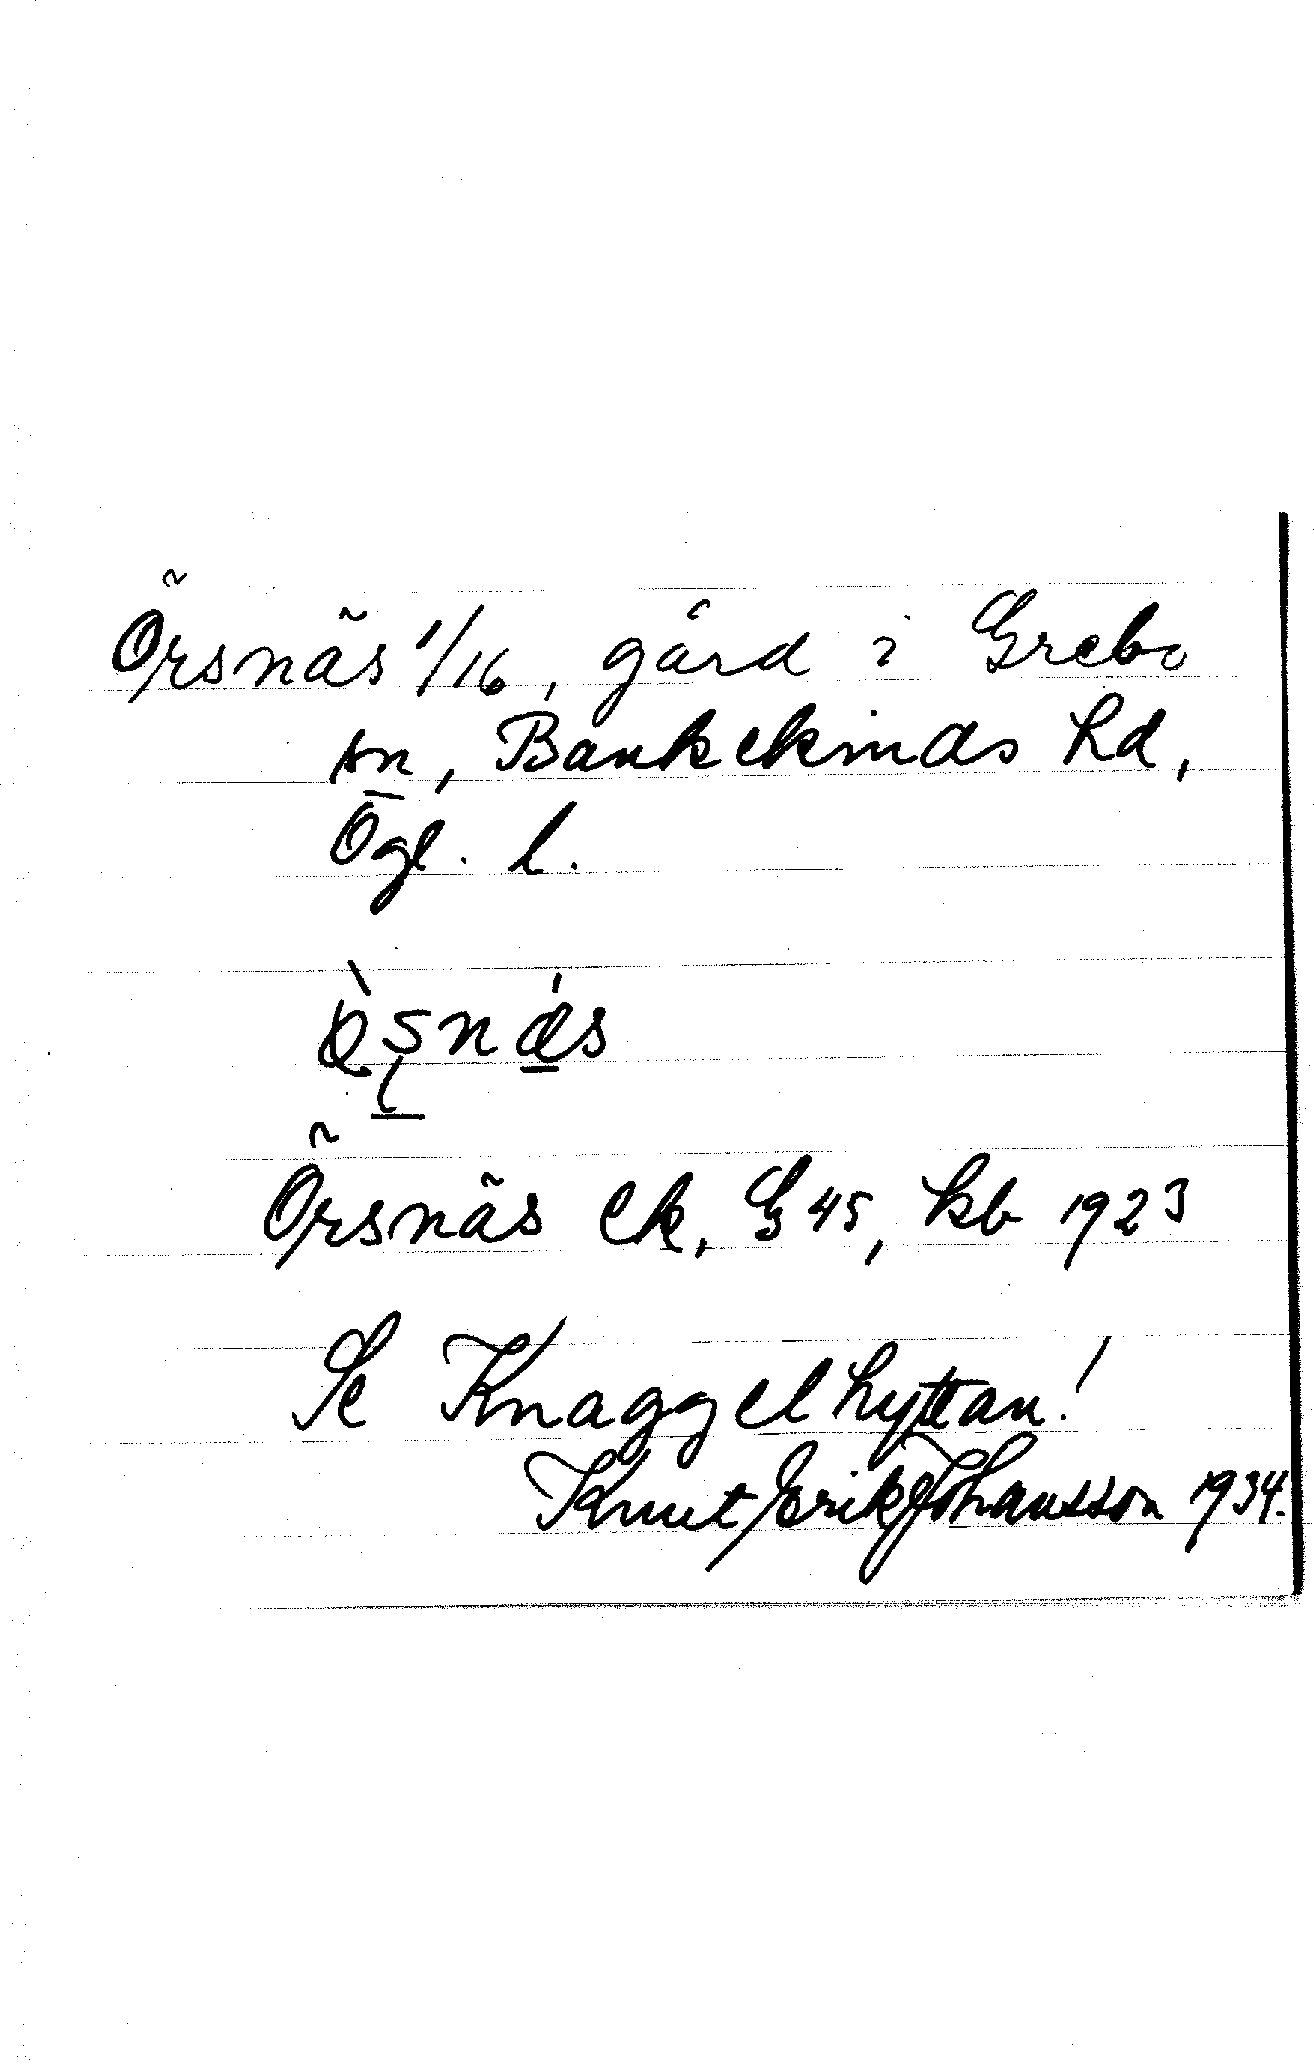 Örsnäs 1/16, gård i Grebo
sn, Bankekinds hd,
Ögl. l.
ö̀s̨nǽ̠s
Örsnäs Ek, G 45, kb 1923
Se Knaggelhyttan!
Knut Erik Johansson 1934.